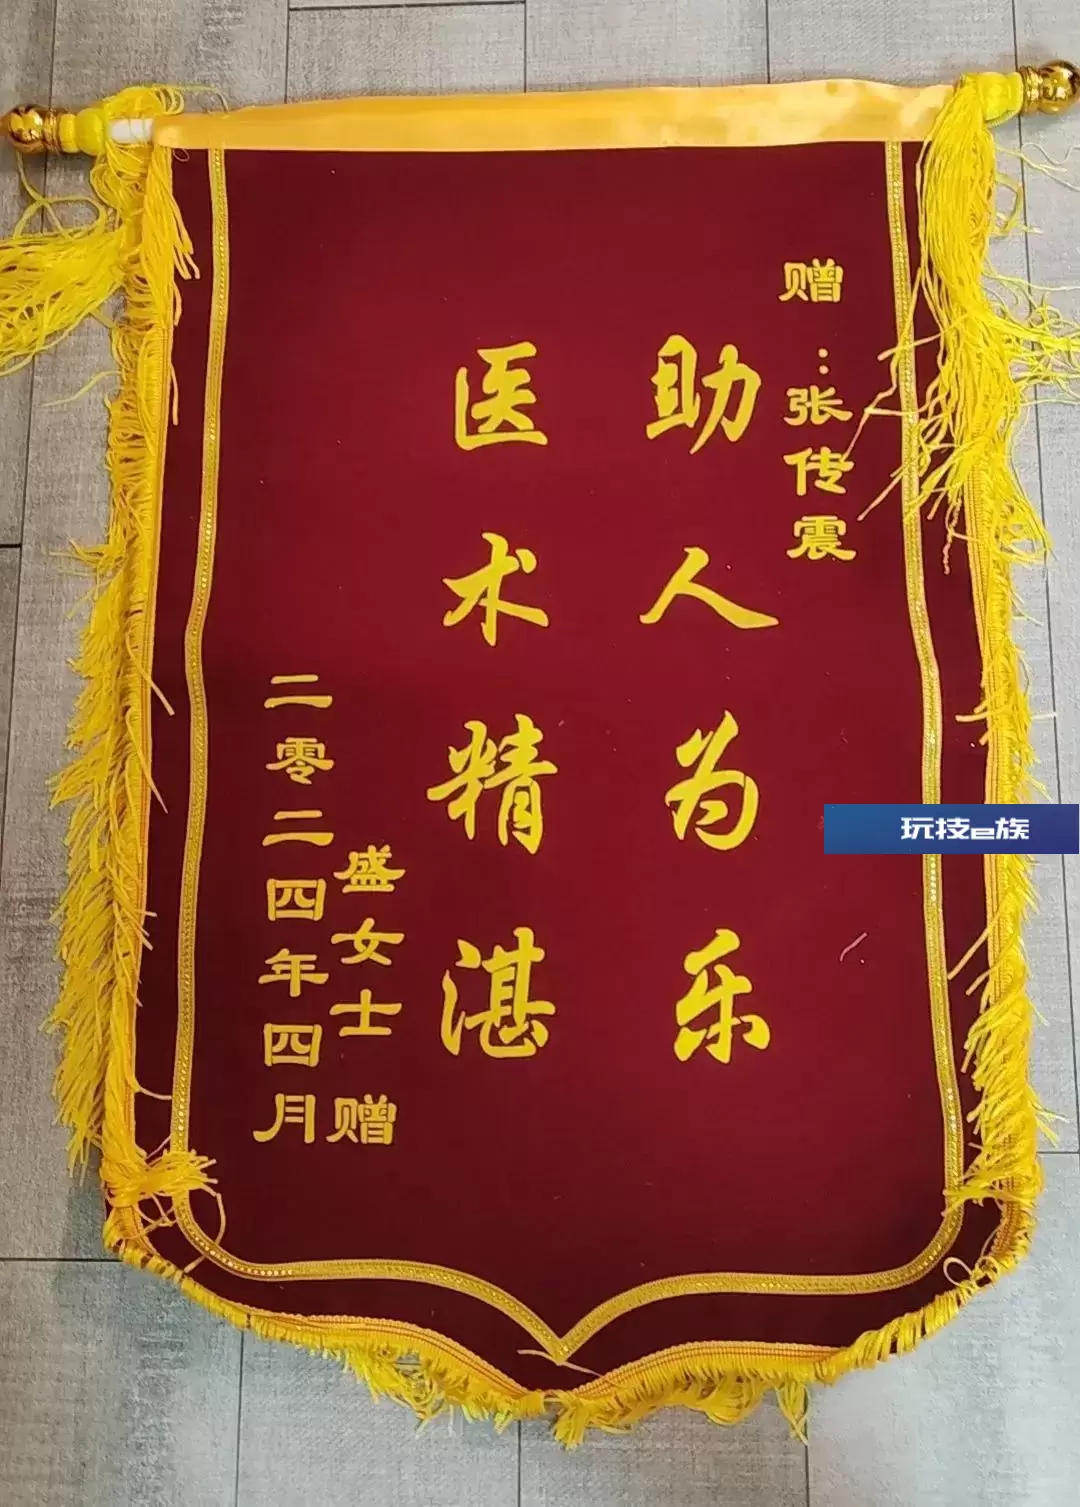 赠：张传震
助人为乐
医术精湛
盛女士 赠
二零二四年四月
玩技e族